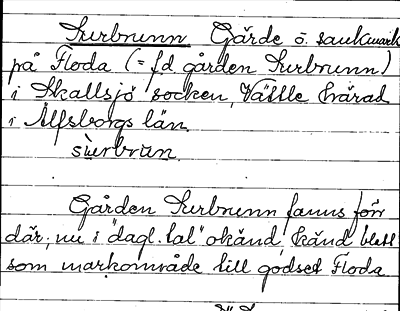 Surbrunn Gärde o. sankmark
på Floda (= f.d. gården Surbrunn)
i Skallsjö socken, Vättle härad
i Älfsborgs län.
sùrbrun.
Gården Surbrunn fanns förr
där; nu i "dagl. tal" okänd, känd blott
som markområde till godset Floda